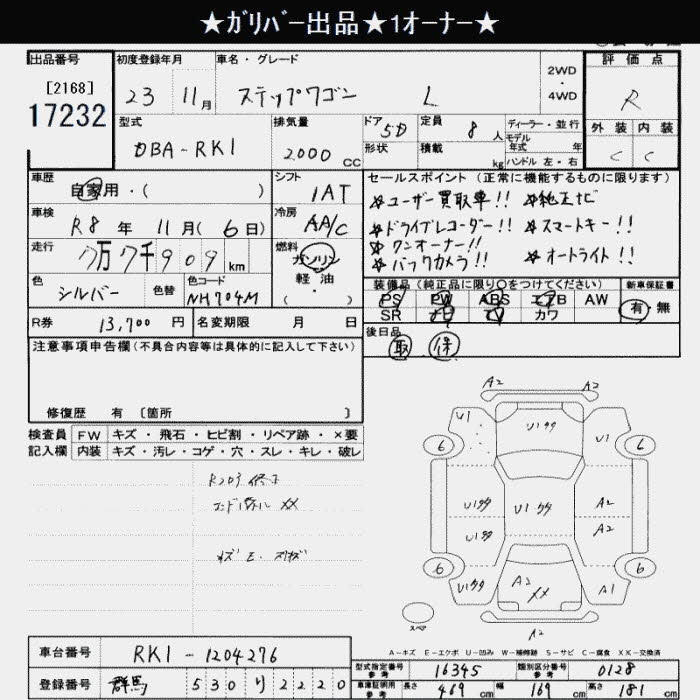 ★ガリバー出品★1オーナー★
出品番号
[2168]
17232
初度登録年月
23 11月
車名・グレード
ステップワゴン L
2WD
・
4WD
評価点
R
外装 内装
C C
型式
DBA-RK1
排気量
2000 CC
ドア 5D
形状
定員 8 人
積載 kg
ディーラー・並行
モデル
年式 年
ハンドル 左・右
車歴
自家用・( )
シフト
1AT
車検
R8 年 11月(6日)
冷房
AA/C
走行
7万7千909 km
燃料
ガソリン
軽油
・
( )
色
シルバー
色替
色コード
NH704M
R券 13,700 円
名変期限 月 日
セールスポイント(正常に機能するものに限ります)
☆ユーザー買取車!! ☆純正ナビ
☆ドライブレコーダー!! ☆スマートキー!!
☆ワンオーナー!!
☆バックカメラ!! ☆オートライト!!
装備品(純正品に限り○をつけてください)
新車保証書
PS PW ABS エアB AW
SR ナビ TV カワ
有・無
後日品
取 保
注意事項申告欄(不具合内容等は具体的に記入して下さい)
修復歴 有 〔箇所 〕
検査員
記入欄
FW キズ・飛石・ヒビ割・リペア跡・×要
内装 キズ・汚レ・コゲ・穴・スレ・キレ・破レ
XX
A2 A2
U1 U1タタ U1
6 6
U1タタ U1タタ A2
U1タタ A2
6 6
U1タタ A2 XX A1
A2
スペア
A-キズ E-エクボ U-凹み W-補修跡 S-サビ C-腐食 XX-交換済
車台番号 RK1-1204276
登録番号 群馬 530 り 2220
型式指定番号
参考
16345
類別区分番号
参考
0128
車庫証明用
参考
長さ 469 cm 幅 169 cm 高さ 181 cm